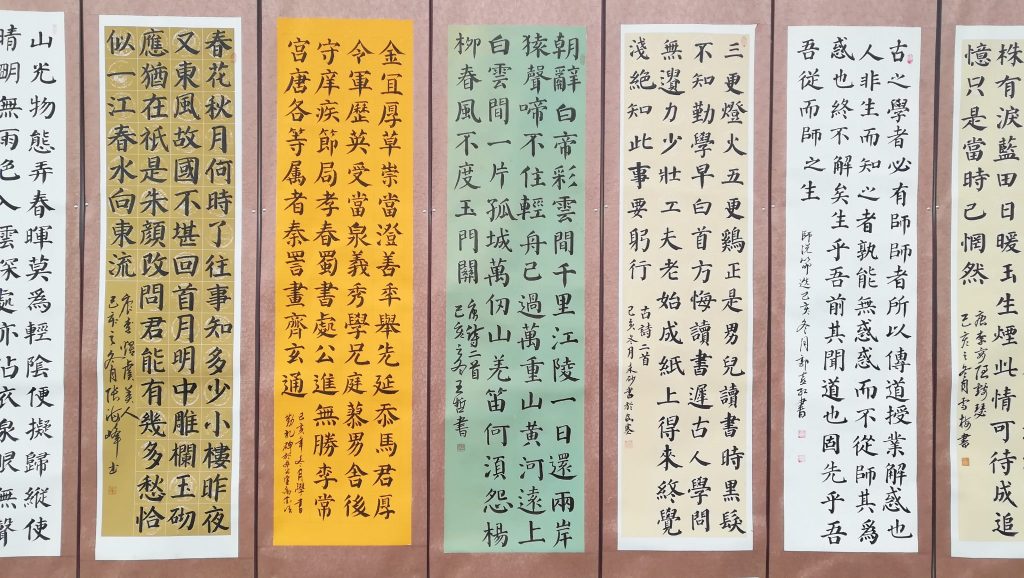 株有淚藍田日暖玉生煙此情可待成追
憶只是當時已惘然
唐李商隱錦瑟
己亥之冬月雪梅書
古之學者必有師師者所以傳道授業解惑也
人非生而知之者孰能無惑惑而不從師其爲
惑也終不解矣生乎吾前其聞道也固先乎吾
吾從而師之生
師説節選己亥冬月郭
三更燈火五更鷄正是男兒讀書時黑髮
不知勤學早白首方悔讀書遲古人學問
無遺力少壯工夫老始成紙上得來終覺
淺絶知此事要躬行
古詩二首
己亥冬月
朝辭白帝彩雲間千里江陵一日還兩岸
猿聲啼不住輕舟已過萬重山黄河遠上
白雲間一片孤城萬仞山羌笛何須怨楊
柳春風不度玉門關
唐詩二首
己亥之冬王哲書
金宜厚草崇當澄善率舉先延忝馬君厚
令軍歷英受當泉義秀學兄庭慕男舍後
守庠疾節局孝春蜀書處公進無勝李常
宮唐各等属者泰詈畫齊玄通
己亥年冬月學書
春花秋月何時了往事知多少小樓昨夜
又東風故國不堪回首月明中雕欄玉砌
應猶在衹是朱顔改問君能有幾多愁恰
似一江春水向東流
己亥之冬月張海峰書
山光物態弄春暉莫爲輕陰便擬歸縱使
晴明無雨色入雲深處亦沾衣泉眼無聲